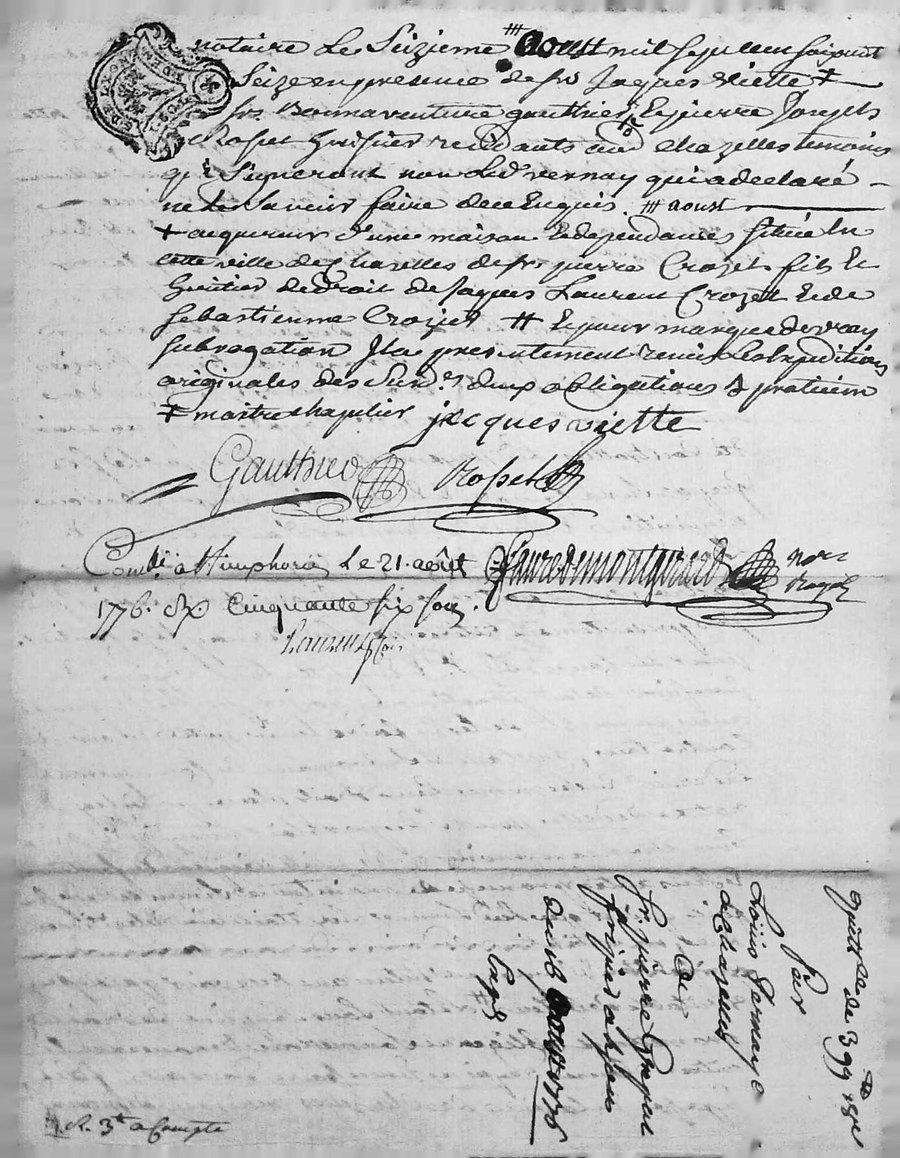 notaire Le Seizieme aoust mil sept cent soixante
Seize en presence de sr Jacques viette +
srs Bonnaventure gauthier, & pierre Joseph
Rosset huissier residants aud Chazelles temoins
qui Signeront non Led vernay qui a declaré
ne le Savoir faire de ce Enquis. aoust
+ acquereur d'une maison & dependances Situé En
cette ville de Chazelles de sr pierre Crozet fils Et
heritier de droit de Jaques Laurent Crozet & de
Sebastienne Crozet # & pour marque de vray
Subrogation Il a presentement remis Les Expeditions
originales des Susd. deux obligations & praticien
+ maitre chapelier jacques viette
Gauthier Rosset
à St Simphorien Le 21. août fauredemontgirard nore
Royal
1776. Cinquante six sous.
de 399
Pour
Loüis Vernay
à Chazelles
De
Sr. pierre
à Lyon
du 16 aoust 1776
R. 3tt a Compte